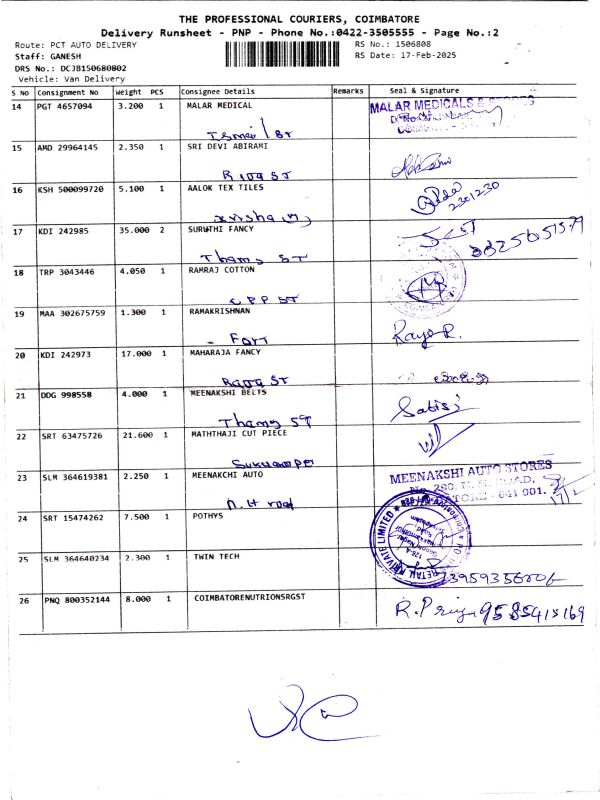 THE PROFESSIONAL COURIERS, COIMBATORE
Delivery Runsheet - PNP - Phone No.:0422-3505555 - Page No.:2
Route: PCT AUTO DELIVERY RS No.: 1506808
Staff: GANESH RS Date: 17-Feb-2025
DRS No.: DCJB150680802
Vehicle: Van Delivery
S No Consignment No Weight PCS Consignee Details Remarks Seal & Signature
14 PGT 4657094 3.200 1 MALAR MEDICAL MALAR MEDICALS & STORES
15 AMD 29964145 2.350 1 SRI DEVI ABIRAMI
Raja ST
16 KSH 500099720 5.100 1 AALOK TEX TILES
2301230
17 KDI 242985 35.000 2 SURUTHI FANCY
Thams ST
18 TRP 3043446 4.050 1 RAMRAJ COTTON
CPP ST
19 MAA 302675759 1.300 1 RAMAKRISHNAN
- Fort
20 KDI 242973 17.000 1 MAHARAJA FANCY
Raja ST
21 DDG 998558 4.000 1 MEENAKSHI BELTS
Thams ST
22 SRT 63475726 21.600 1 MATHTHAJI CUT PIECE
23 SLM 364619381 2.250 1 MEENAKCHI AUTO MEENAKSHI AUTO STORES
N.H road
24 SRT 15474262 7.500 1 POTHYS
25 SLM 364640234 2.300 1 TWIN TECH
26 PNQ 800352144 8.000 1 COIMBATORENUTRIONSRGST R. Priya 9585415169